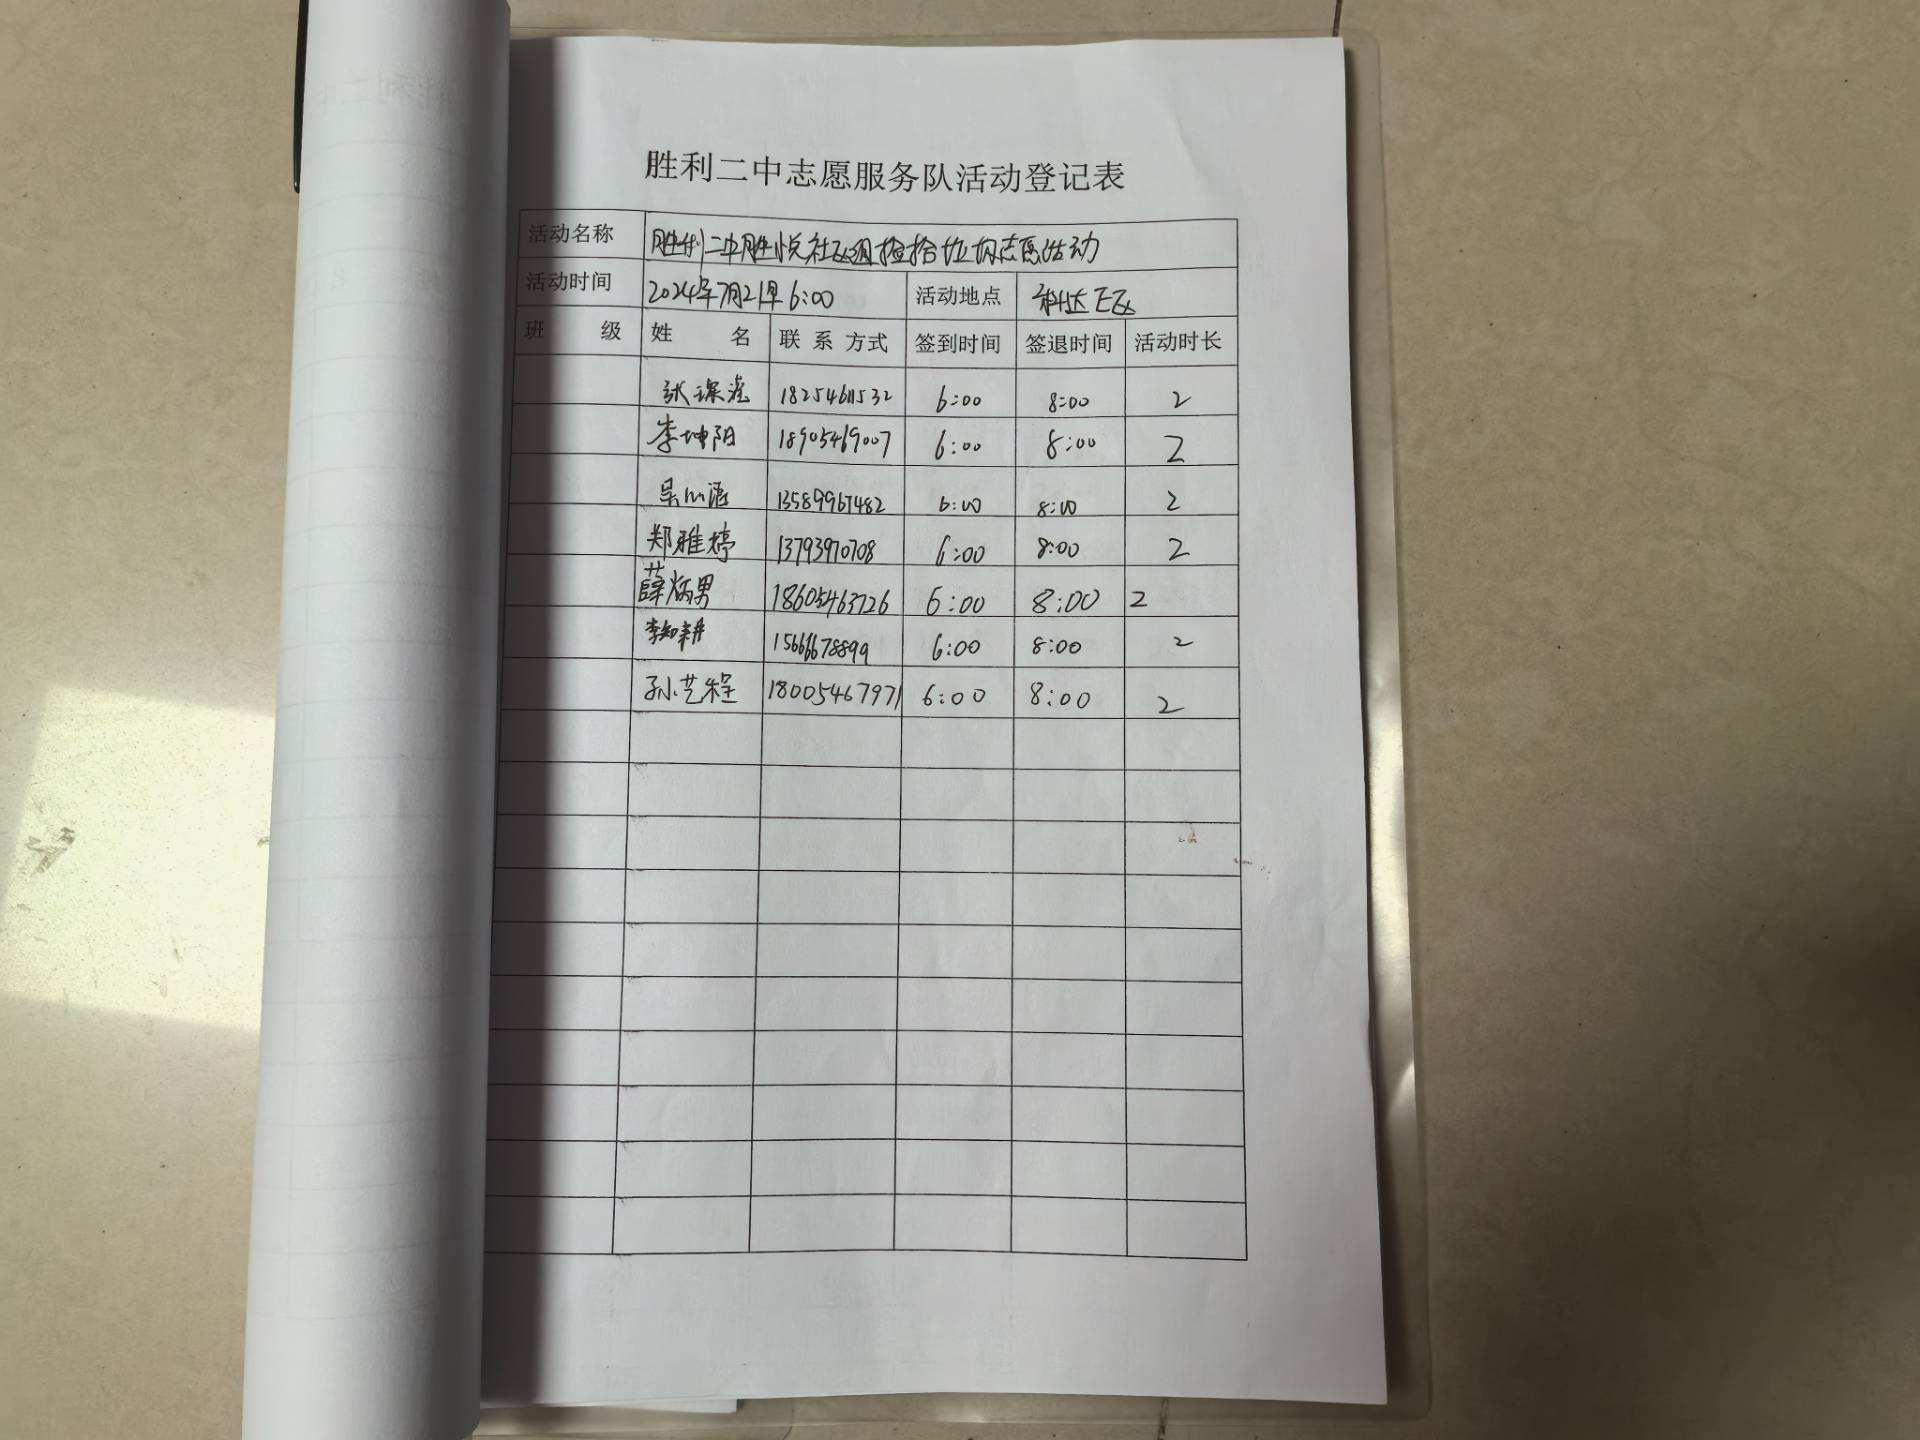 胜利二中志愿服务队活动登记表
活动名称 胜利二中胜悦社区捡拾垃圾志愿活动
活动时间 2024年7月21早6:00 活动地点 科达E区
班 级 姓 名 联 系 方式 签到时间 签退时间 活动时长
张 18254611532 6:00 8:00 2
李坤阳 18905469007 6:00 8:00 2
吴心语 13589967482 6:00 8:00 2
郑雅婷 13793970708 6:00 8:00 2
薛炳男 18605463726 6:00 8:00 2
李知耕 15666678899 6:00 8:00 2
孙艺程 18005467971 6:00 8:00 2